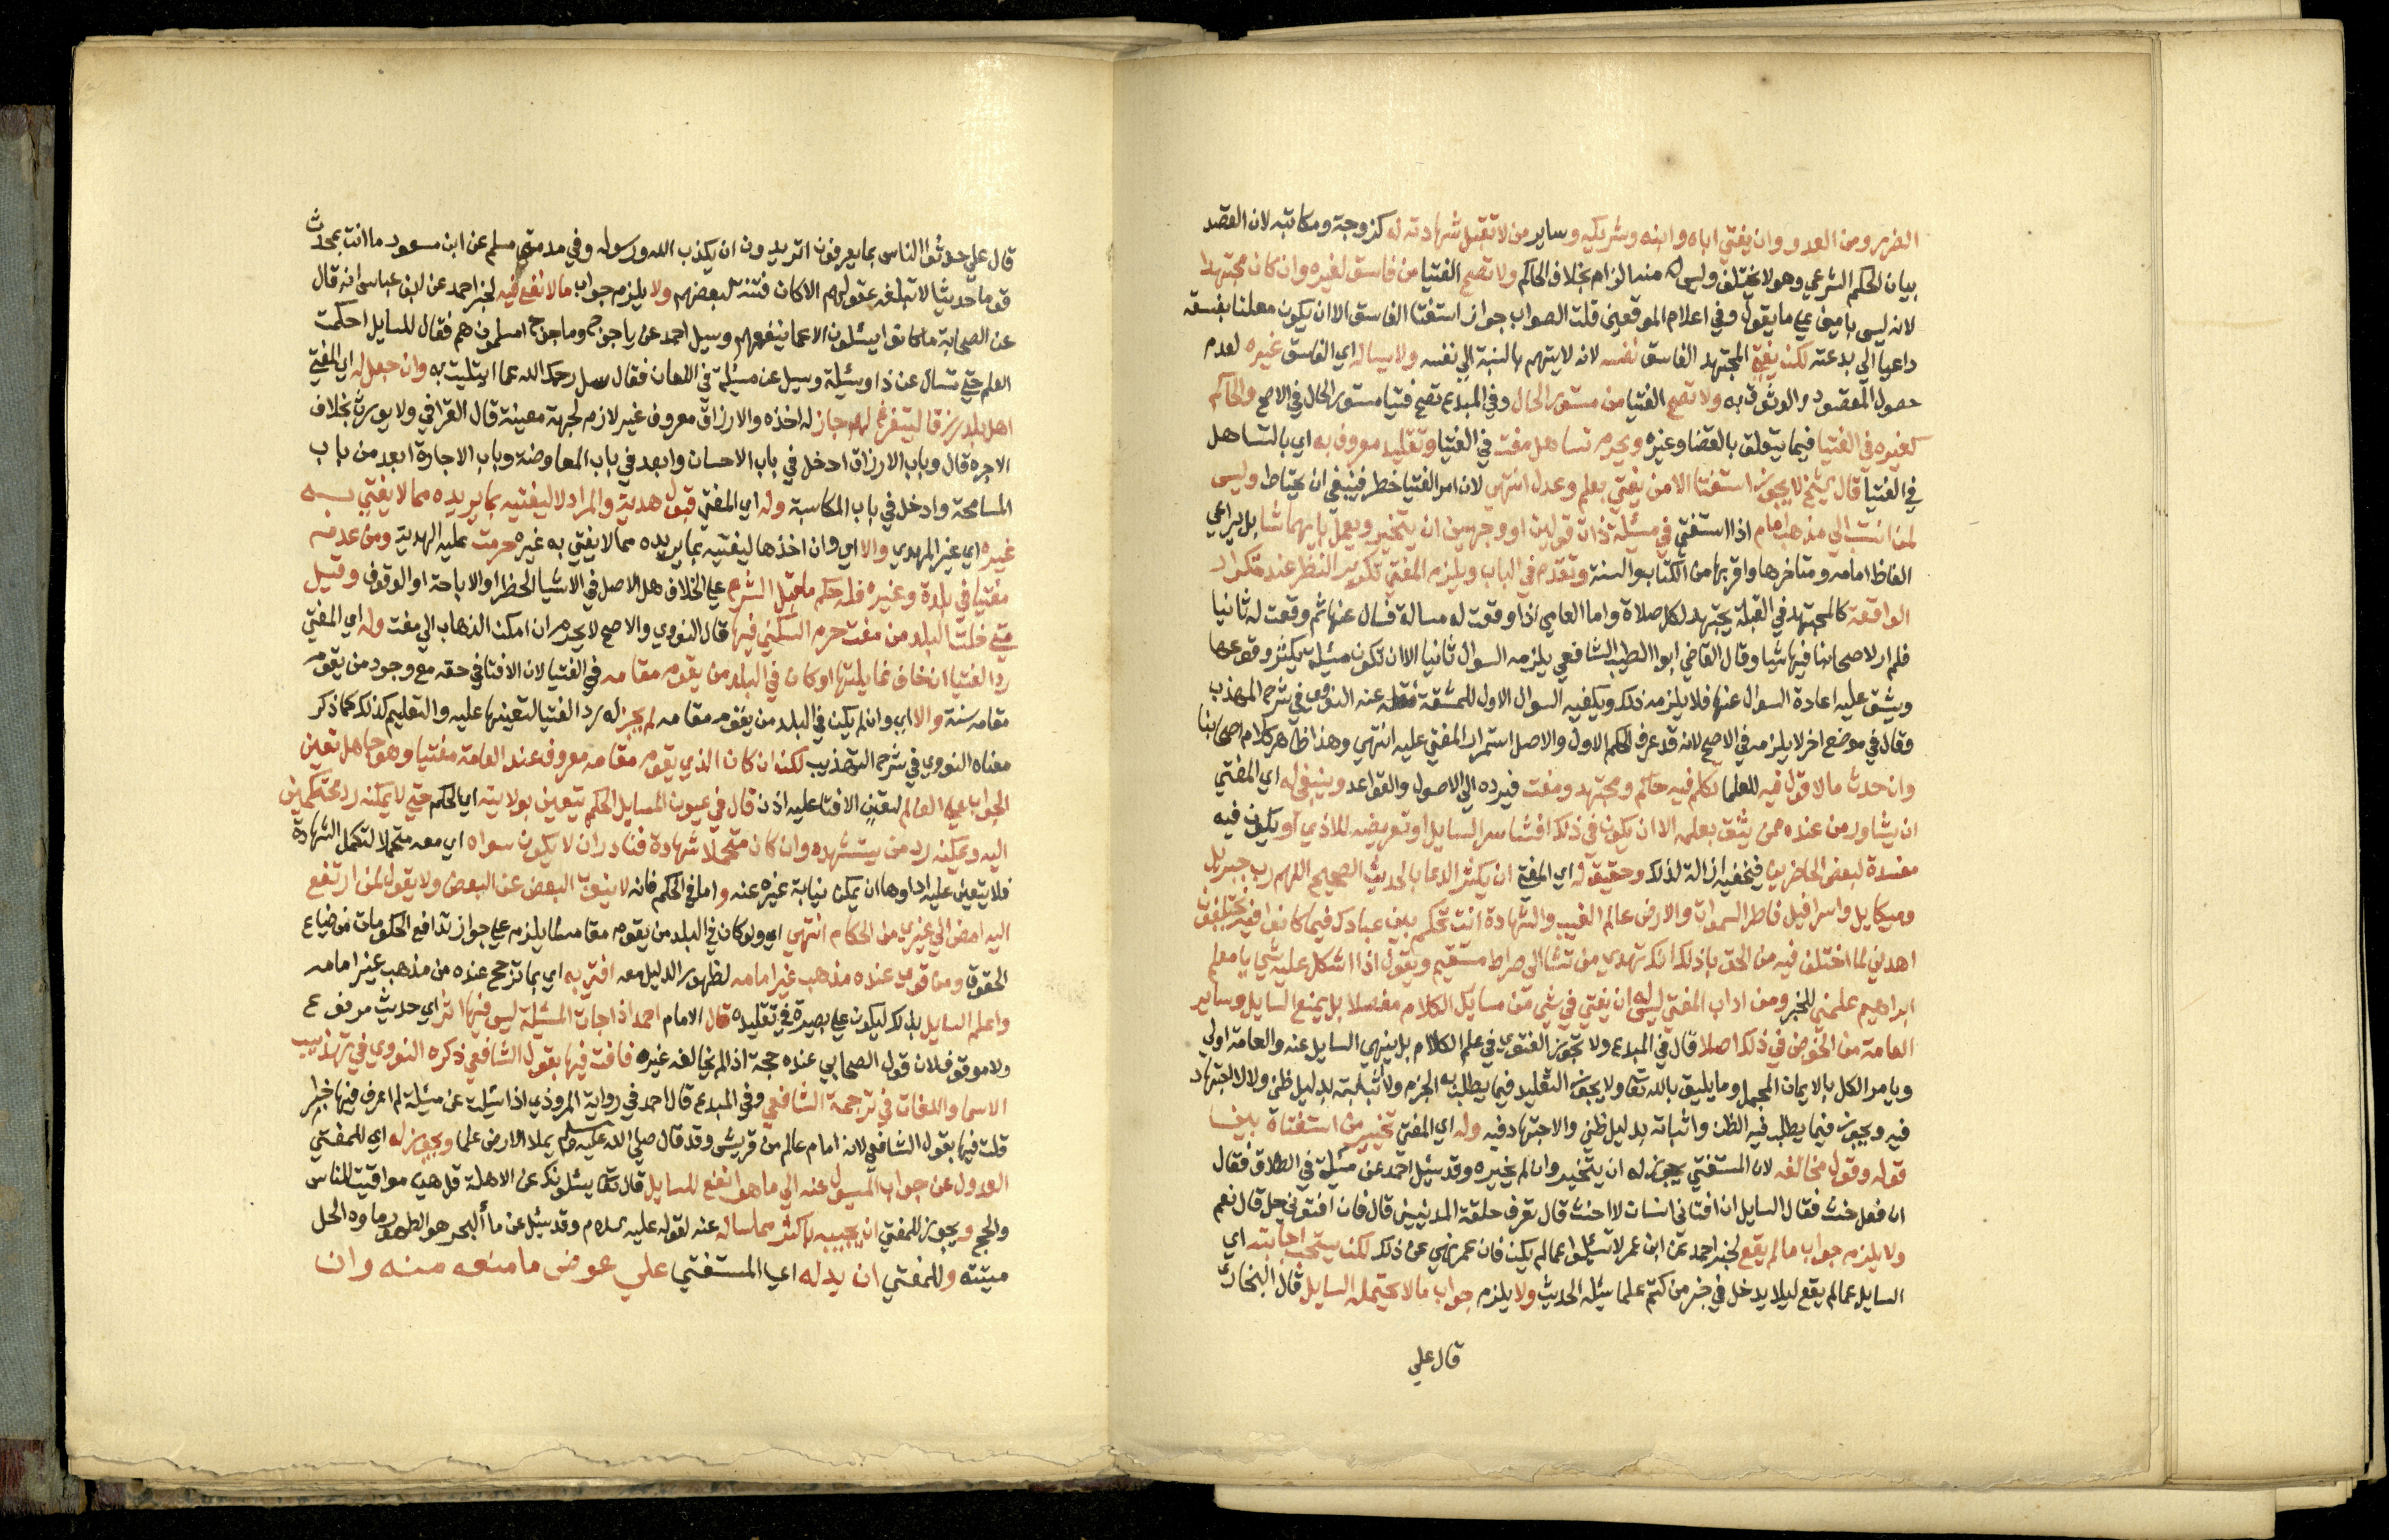 الضرر ومن العدو وان يفتي اباه وابنه وشريكه وساير من لا تقبل شهادته له كزوجة ومكاتبه لان القصد
بيان الحكم الشرعي وهو لا يختلف وليس منه الزام بخلاف الحاكم ولا تصح الفتيا من فاسق لغيره وان كان مجتهدا
لانه ليس بامين على ما يقول وفي اعلام الموقعين قلت الصواب جواز استفتا الفاسق الا ان يكون معلنا بفسقه
داعيا الي بدعته لكن يفتي المجتهد الفاسق نفسه لانه لا يتهم بالنسبة الي نفسه ولا يساله اي الفاسق غيره لعدم
حصول المقصود والوثوق به ولا تصح الفتيا من مستور الحال وفي المبدع تصح فتيا مستور الحال في الاصح والحاكم
كغيره في الفتيا فيما يتعلق بالقضا وغيره ويحرم تساهل مفت في الفتيا وتقليد معروف به اي بالتساهل
في الفتيا قال الشيخ لا يجوز استفتا الا من يفتي بعلم وعدل انتهي لان امر الفتيا خطر فينبغي ان يحتاط وليس
لمن انتسب الي مذهب امام اذا استفتي في مسيلة ذات قولين او وجهين ان يتخير ويعمل بايهما شا بل يراعي
الفاظ امامه ومتاخرها واقربها من الكتاب والسنة وتقدم في الباب ويلزم المفتي تكرير النظر عند تكرار
الواقعة كالمجتهد في القبلة يجتهد لكل صلاة واما العامي اذا وقعت له مسالة فسال عنها ثم وقعت له ثانيا
فلم ار لاصحابنا فيها شيا وقال القاضي ابو الطيب الشافعي يلزمه السوال ثانيا الا ان تكون مسئلة يكثر وقوعها
ويشق عليه اعادة السوال عنها فلا يلزمه ذلك ويكفيه السوال الاول للمشقة نقله عنه النووي في شرح المهذب
وقال في موضع اخر لا يلزمه في الاصح لانه قد عرف الحكم الاول والاصل استمرار المفتي عليه انتهي وهذا ظاهر كلام اصحابنا
وان حدث مالا قول فيه للعلما تكلم فيه حاكم ومجتهد ومفت فيرده الي الاصول والقواعد وينبغي له اي المفتي
ان يشاور من عنده ممن يثق بعلمه الا ان يكون في ذلك افشا سر السايل او تعريضه للاذي او يكون فيه
مفسدة لبعض الحاضرين فيخفيه ازالة لذلك وحقيق له اي المفتي ان يكثر الدعا بالحديث الصحيح اللهم رب جبريل
وميكايل واسرافيل فاطر السموات والارض عالم الغيب والشهادة انت تحكم بين عبادك فيما كانوا فيه يختلفون
اهدني لما اختلف فيه من الحق باذنك انك تهدي من تشا الي صراط مستقيم ويقول اذا اشكل عليه شي يا معلم
ابراهيم علمني للخبر ومن اداب المفتي ليس له ان يفتي في شي من مسايل الكلام مفصلا بل يمنع السايل وساير
العامة من الخوض في ذلك اصلا قال في المبدع ولا تجوز الفتوي في علم الكلام بل ينهي السايل عنه والعامة اولي
ويامر الكل بالايمان المجمل وما يليق بالله تعا ولا يجوز التقليد فيما يطلب به الجزم ولا اثباته بدليل ظني ولا الاجتهاد
فيه ويجوز فيما يطلب فيه الظن واثباته بدليل ظني والاجتهاد فيه وله اي المفتي تخيير من استفتاه بين
قوله وقول مخالفه لان المستفتي يجوز له ان يتخير وان لم يخيره وقد سئل احمد عن مسئلة في الطلاق فقال
ان فعل حنث فقال السايل ان افتاني انسان لا احنث قال تعرف حلقة المدنيين قال فان افتوني حل قال نعم
ولا يلزم جواب ما لم يقع لخبر احمد عن ابن عمر لا تسئلوا عما لم يكن فان عمر نهي عن ذلك لكن يستحب اجابته اي
السايل عما لم يقع ليلا يدخل في خبر من كتم علما سئله الحديث ولا يلزم جواب ما لا يحتمله السايل قال البخاري
قال علي
قال علي حدثوا الناس بما يعرفون اتريدون ان يكذب الله ورسوله وفي مقدمة مسلم عن ابن مسعود ما انت بمحدث
قوما حديثا لا تبلغه عقولهم الا كان فتنة لبعضهم ولا يلزم جواب ما لا نفع فيه لخبر احمد عن ابن عباس انه قال
عن الصحابة ما كانوا يسئلون الا عما ينفعهم وسيل احمد عن ياجوج وماجوج امسلمون هم فقال للسايل احكمت
العلم حتي تسال عن ذا وسئله وسيل عن مسئلة في اللعان فقال سل رحمك الله عما ابتليت به وان جعل له اي المفتي
اهل بلد رزقا ليتفرغ لهم جاز له اخذه والارزاق معروف غير لازم لجهة معينة قال القرافي ولا يورث بخلاف
الاجره قال وباب الارزاق ادخل في باب الاحسان وابعد في باب المعاوضة وباب الاجارة ابعد من باب
المسامحة وادخل في باب المكاسبة وله اي المفتي قبول هدية والمراد لا ليفتيه بما يريده مما لا يفتي به
غيره اي غير المهدي والا اي وان اخذها ليفتيه بما يريده مما لا يفتي به غيره حرمت عليه الهدية ومن عدم
مفتيا في بلدة وغيره فله حكم ما قبل الشرع علي الخلاف هل الاصل في الاشيا الحظر او الاباحة او الوقوف وقيل
متي خلت البلد من مفت حرم السكني فيها قال النووي والاصح لا يحرم ان امكن الذهاب الي مفت وله اي المفتي
رد الفتيا ان خاف غايلتها او كان في البلد من يقوم مقامه في الفتيا لان الافتا في حقه مع وجود من يقوم
مقامه سنة والا اي وان لم يكن في البلد من يقوم مقامه لم يجز له رد الفتيا لتعينها عليه والتعليم كذلك كما ذكر
معناه النووي في شرح التهذيب لكن ان كان الذي يقوم مقامه معروف عند العامة مفتيا وهو جاهل تعين
الجواب علي العالم لتعين الافتا عليه اذن قال في عيون المسايل الحكم يتعين بولايته اي الحكم حتي لا يمكنه رد محتكمين
اليه ويمكنه رد من يستشهده وان كان متحملا شهادة فنادر ان لا يكون سواه اي معه متحملا لتكمل الشهادة
فلا يتعين عليه اداوها ان يمكن نيابة غيره عنه واما في الحكم فانه لا ينوب البعض عن البعض ولا يقول لمن ارتفع
اليه امض الي غيري من الحكام انتهي اي ولو كان في البلد من يقوم مقامه لما يلزم علي جواز تدافع الحكومات من ضياع
الحقوق ومن قوي عنده مذهب غير امامه لظهور الدليل معه افتي به اي بما ترجح عنده من مذهب غير امامه
واعلم السايل بذلك ليكون علي بصيرة في تقليده قال الامام احمد اذا جات المسئلة ليس فيها اثر اي حديث مرفوع
ولا موقوف لان قول الصحابي عنده حجة اذا لم يخالفه غيره فافت فيها بقول الشافعي ذكره النووي في تهذيب
الاسما واللغات في ترجمة الشافعي وفي المبدع قال احمد في رواية المروذي اذا سئلت عن مسئلة لم اعرف فيها خبر
قلت فيها بقول الشافعي لانه امام عالم من قريش وقد قال صلي الله عليه وسلم يملا الارض علما ويجوز له اي للمفتي
العدول عن جواب المسول عنه الي ما هو انفع للسايل قال تعا يسئلونك عن الاهلة قل هي مواقيت للناس
والحج ويجوز للمفتي ان يجيبه باكثر مما ساله عنه لقوله عليه السلام وقد سئل عن ما البحر هو الطهور ماوه الحل
ميتته وللمفتي ان يدله اي المستفتي علي عوض ما منعه منه وان